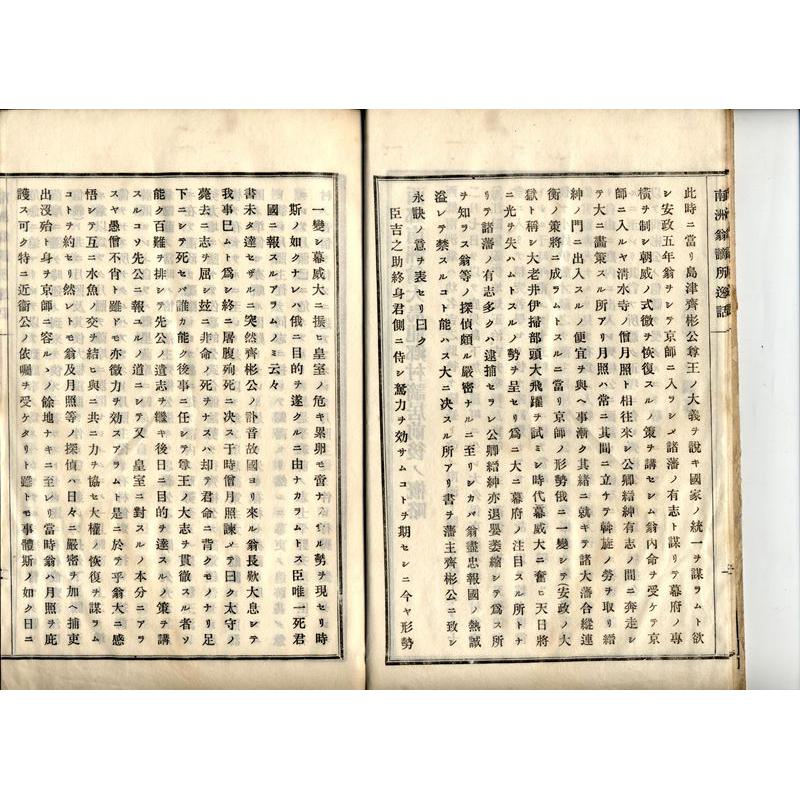 南洲翁謫所逸話
此時ニ當リ島津齊彬公尊王ノ大義ヲ說キ國家ノ統一ヲ謀ラムト欲
シ安政五年翁ヲシテ京師ニ入ラシメ諸藩ノ有志ト謀リテ幕府ノ專
橫ヲ制シ朝威ノ式微ヲ恢復スルノ策ヲ講セシム翁內命ヲ受ケテ京
師ニ入ルヤ淸水寺ノ僧月照ト相往來シ公卿縉紳有志ノ間ニ奔走シ
テ大ニ畫策スル所アリ月照ハ常ニ其間ニ立ケテ斡旋ノ勞ヲ取リ縉
紳ノ門ニ出入スルノ便宜ヲ與ヘ事漸ク其緖ニ就キテ諸大藩合縱連
衡ノ策將ニ成ラムトスルニ當リ京師ノ形勢俄ニ一變シテ(安政ノ大
獄ト稱シ大老井伊掃部頭大飛躍ヲ試ミシ時代幕威大ニ奮ヒ天日將
ニ光ヲ失ハムトスルノ勢ヲ呈セリ爲ニ大ニ幕府ノ注目スル所トナ
リテ諸藩ノ有志多クハ逮捕セラレ公卿縉紳亦退嬰萎縮シテ爲ス所
ヲ知ラス翁等ノ探偵頗ル嚴密ナルニ至リシカバ翁盡忠報國ノ熱誠
溢レテ禁スルコト能ハス大ニ決スル所アリ書ヲ藩主齊彬公ニ致シ
永訣ノ意ヲ表セリ曰ク
臣吉之助終身君側ニ侍シ駑力ヲ効サムコトヲ期セシニ今ヤ形勢
一變シ幕威大ニ振ヒ皇室ノ危キ累卵モ啻ナラザル勢ヲ現セリ時
斯ノ如クナレハ俄ニ目的ヲ遂クルニ由ナカラムトス臣唯一死君
國ニ報スルアラムノミ云々
書未タ達セザルニ突然齊彬公ノ訃音故國ヨリ來ル翁長歎大息シテ
我事已ムト爲シ終ニ屠腹殉死ニ決ス于時僧月照諫メテ曰ク太守ノ
薨去ニ志ヲ屈シ玆ニ非命ノ死ヲナスハ却テ君命ニ背クモノナリ足
下ニシテ死セバ誰カ能ク後事ニ任シテ尊王ノ大志ヲ貫徹スル者ソ
能ク百難ヲ排シテ先公ノ遺志ヲ繼キ後日ニ目的ヲ達スルノ策ヲ講
スルコソ先公ニ報ユルノ道ニシテ又 皇室ニ對スルノ本分ニアラ
スヤ愚僧不肖ト雖ドモ亦微力ヲ効スアラムト是ニ於テ乎翁大ニ感
悟シテ互ニ水魚ノ交ヲ結ヒ與ニ共ニ力ヲ協セ大權ノ恢復ヲ謀ラム
コトヲ約セリ然レトモ翁及月照等ノ探偵ハ日々ニ嚴密ヲ加ヘ捕吏
出沒殆ト身ヲ京師ニ容ルヽノ餘地ナキニ至レリ當時翁ハ月照ヲ庇
護ス可ク特ニ近衞公ノ依囑ヲ受ケタリト雖トモ事體斯ノ如ク日ニ